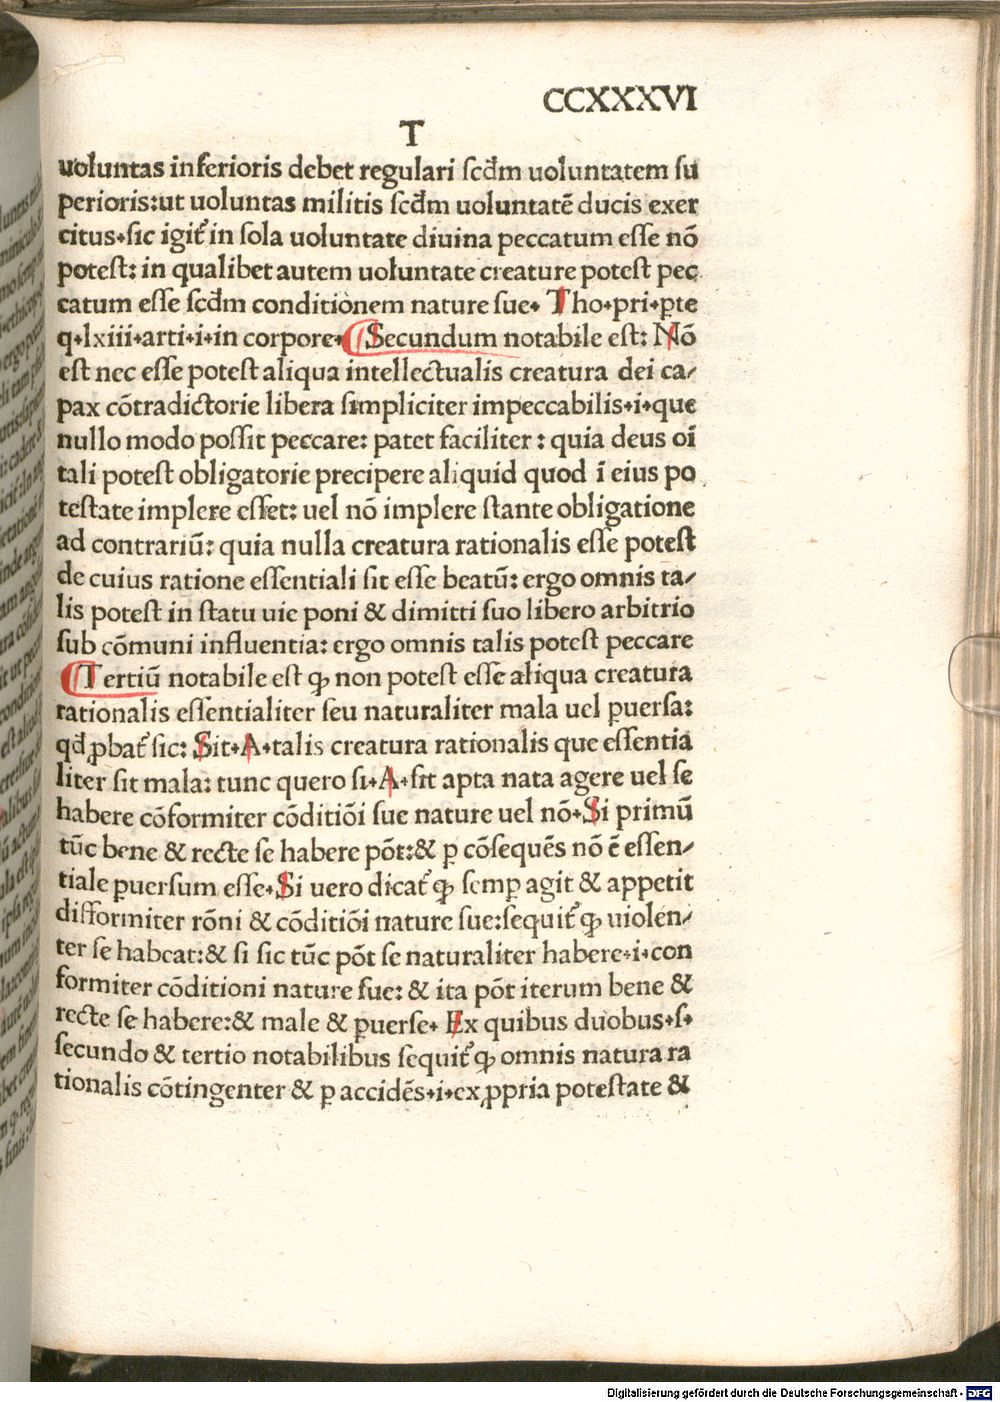 CCXXXVI
T
uoluntas inferioris debet regulari ſcđm uoluntatem ſu
perioris:ut uoluntas militis ſcđm uoluntatē ducis exer
citus.ſic igit᷑ in ſola uoluntate diuina peccatum eſſe nō
poteſt: in qualibet autem uoluntate creature poteſt pec
catum eſſe ſcđm conditionem nature ſue. Tho.pri.ꝑte
q.lxiii.arti.i.in corpore. Secundum notabile eſt: Nō
eſt nec eſſe poteſt aliqua intellectualis creatura dei ca/
pax cōtradictorie libera ſimpliciter impeccabilis.i.que
nullo modo poſſit peccare: patet faciliter: quia deus oī
tali poteſt obligatorie precipere aliquid quod ī eius po
teſtate implere eſſet: uel nō implere ſtante obligatione
ad contrariū: quia nulla creatura rationalis eſſe poteſt
de cuius ratione eſſentiali ſit eſſe beatū: ergo omnis ta/
lis poteſt in ſtatu uie poni & dimitti ſuo libero arbitrio
ſub cōmuni influentia: ergo omnis talis poteſt peccare
Tertiū notabile eſt ꝙ non poteſt eſſe aliqua creatura
rationalis eſſentialiter ſeu naturaliter mala uel ꝑuerſa:
qđ ꝓbat᷑ ſic: Sit.A.talis creatura rationalis que eſſentia
liter ſit mala: tunc quero ſi.A.ſit apta nata agere uel ſe
habere cōformiter cōditiōi ſue nature uel nō.Si primū
tūc bene & recte ſe habere pōt:& ꝑ cōſequēs nō ē eſſen/
tiale ꝑuerſum eſſe.Si uero dicat᷑ ꝙ ſemꝑ agit & appetit
difformiter rōni & cōditiōi nature ſue:ſequit᷑ ꝙ uiolen/
ter ſe habeat:& ſi ſic tūc pōt ſe naturaliter habere.i.con
formiter cōditioni nature ſue: & ita pōt iterum bene &
recte ſe habere:& male & ꝑuerſe. Ex quibus duobus.ſ.
ſecundo & tertio notabilibus ſequit᷑ ꝙ omnis natura ra
tionalis cōtingenter & ꝑ accidēs.i.ex ꝓpria poteſtate &
Digitalisierung gefördert durch die Deutsche Forschungsgemeinschaft - DFG